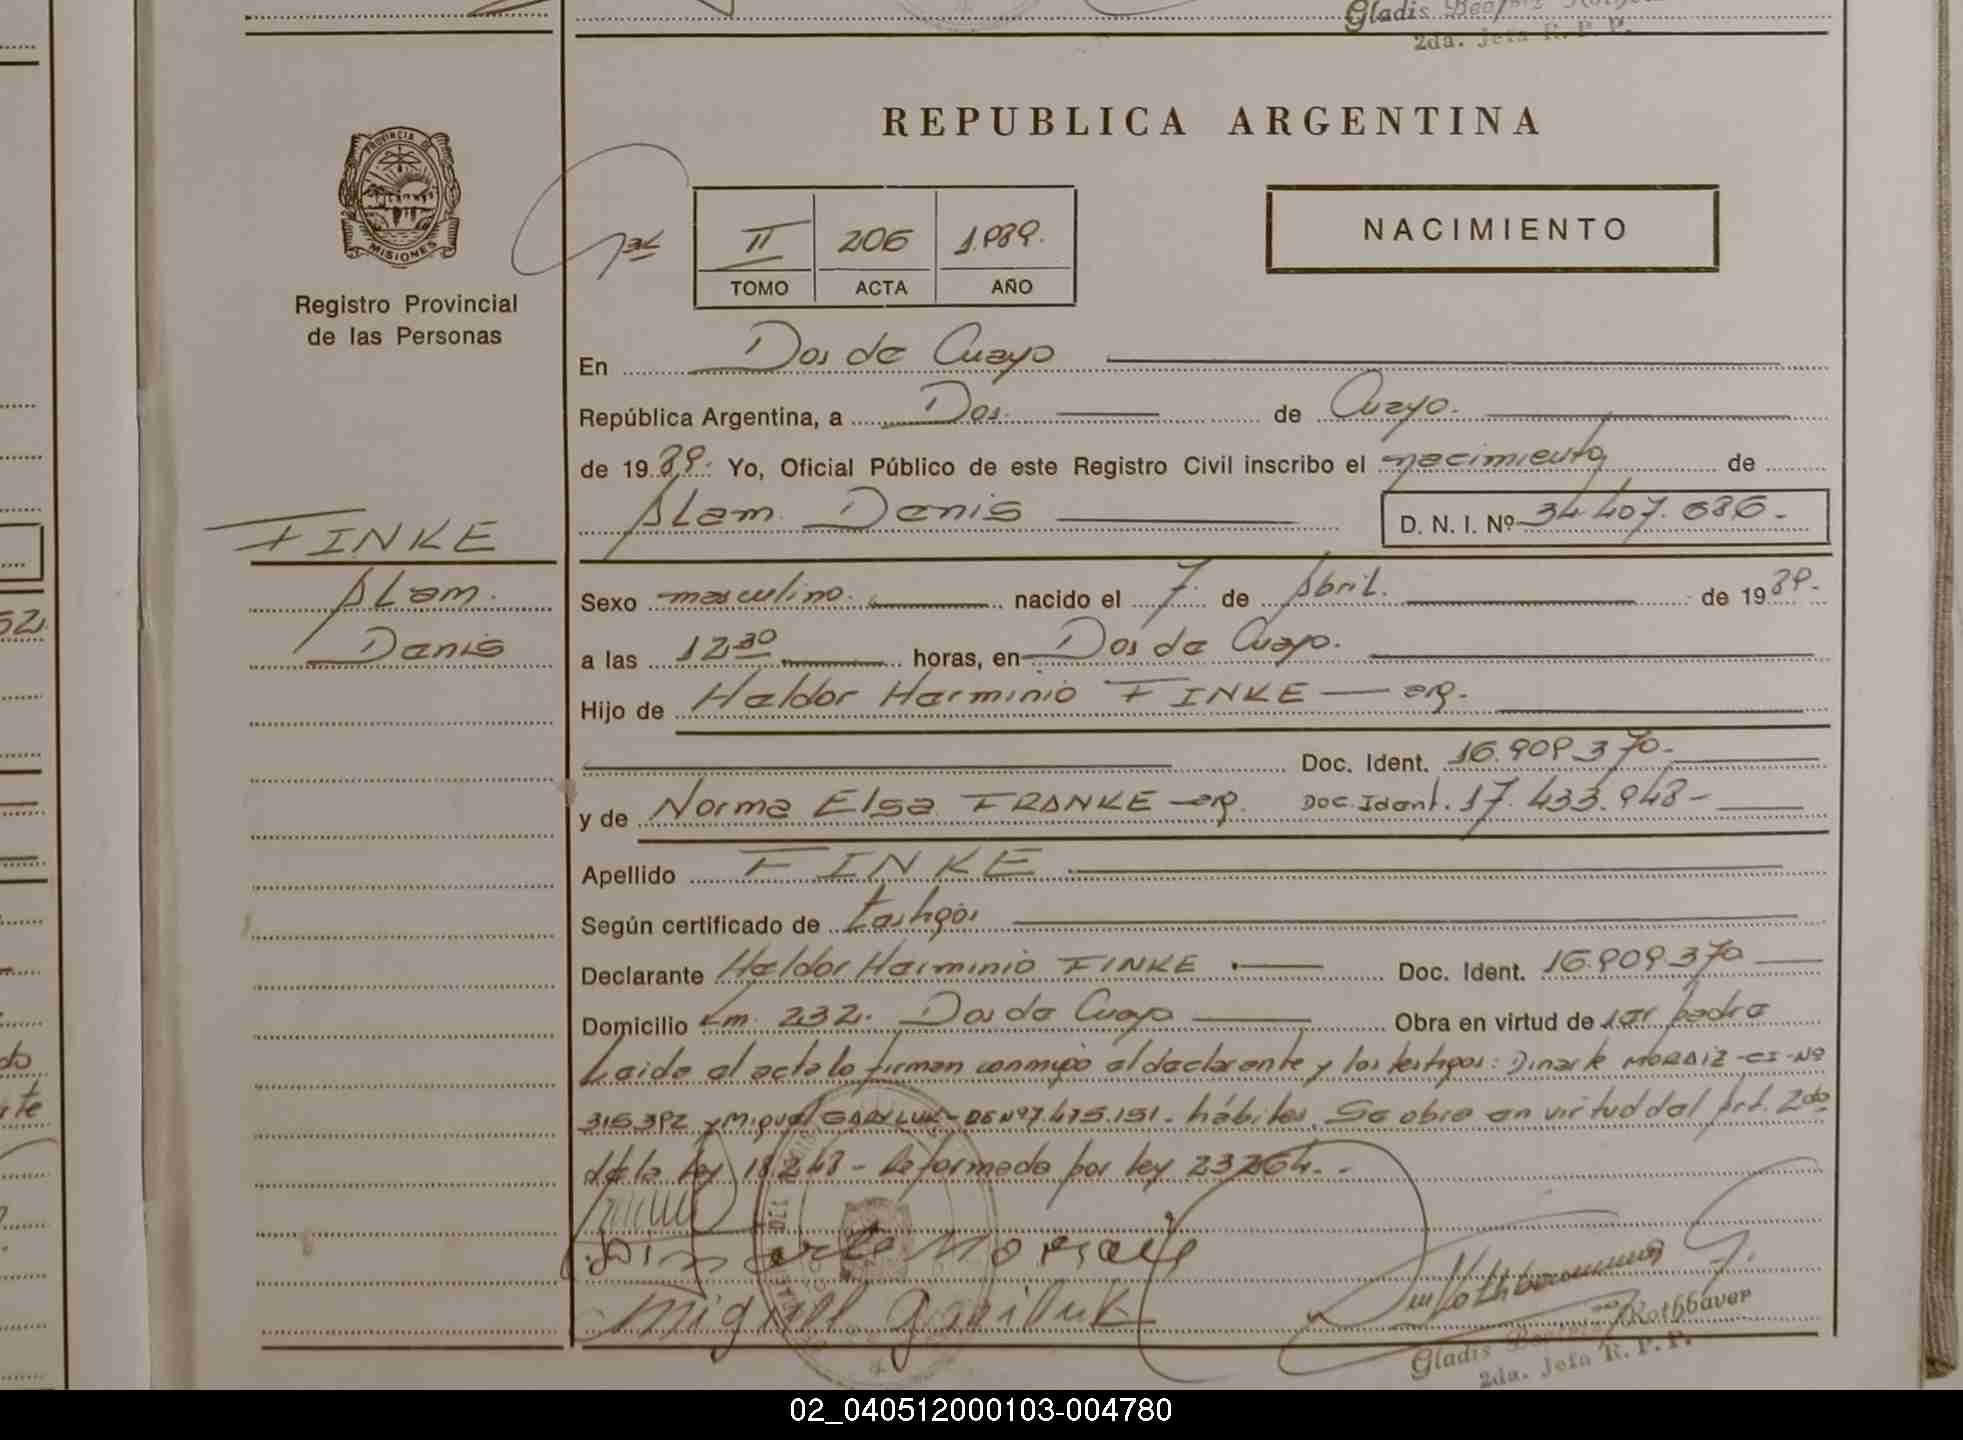 Gladis Beatriz
2da. Jefa R. P. P.
REPUBLICA ARGENTINA
PROVINCIA DE
MISIONES
Registro Provincial
de las Personas
II 206 1989.
TOMO ACTA AÑO
NACIMIENTO
En Dos de Mayo
República Argentina, a Dos. de Mayo.
de 1989. Yo, Oficial Público de este Registro Civil inscribo el nacimiento de
Alam Denis D. N. I. Nº 34.407.686.-
FINKE
Alam.
Denis
Sexo masculino. nacido el 7 de Abril. de 1989.-
a las 12 30 horas, en Dos de Mayo.
Hijo de Heldor Herminio FINKE — arg.
Doc. Ident. 16.909.370.-
y de Norma Elsa FRANKE — arg. Doc. Ident. 17.433.948-
Apellido FINKE
Según certificado de testigos
Declarante Heldor Herminio FINKE Doc. Ident. 16.909.370
Domicilio Km. 232. Dos de Mayo Obra en virtud de ser padre
Leida el acta lo firman conmigo el declarante y los testigos: Dinarte MORAIZ-CI-Nº
315.392 y Miguel GARYLUK- Nº7.475.151.- hábiles. Se obra en virtud del Art. 2do
de la ley 18248- Reformada por ley 23264.-
Dinarte Morais
Miguel
Gladis Beatriz Rothbaver
2da. Jefa R. P. P.
02_040512000103-004780